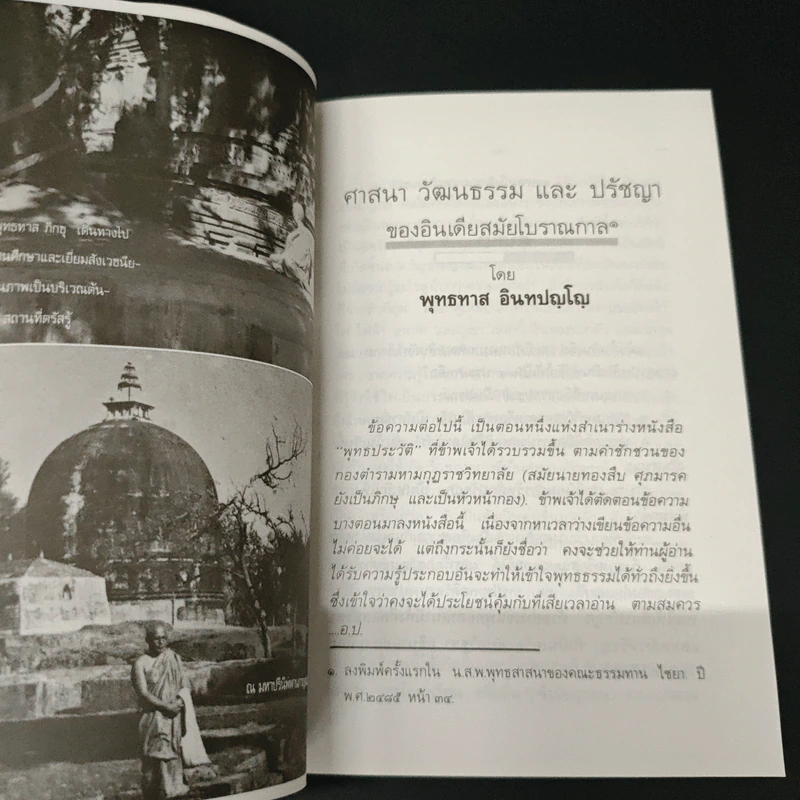 ภิกขุ เดินทางไป
ศึกษาและเยี่ยมสังเวชนีย-
ภาพเป็นบริเวณต้น-
สถานที่ตรัสรู้
ณ
ศาสนา วัฒนธรรม และ ปรัชญา
ของอินเดียสมัยโบราณกาล๑
โดย
พุทธทาส อินทปญฺโญฺ
ข้อความต่อไปนี้ เป็นตอนหนึ่งแห่งสำเนาร่างหนังสือ
"พุทธประวัติ" ที่ข้าพเจ้าได้รวบรวมขึ้น ตามคำชักชวนของ
กองตำรามหามกุฏราชวิทยาลัย (สมัยนายทองสืบ ศุภมารค
ยังเป็นภิกษุ และเป็นหัวหน้ากอง). ข้าพเจ้าได้ตัดตอนข้อความ
บางตอนมาลงหนังสือนี้ เนื่องจากหาเวลาว่างเขียนข้อความอื่น
ไม่ค่อยจะได้ แต่ถึงกระนั้นก็ยังชื่อว่า คงจะช่วยให้ท่านผู้อ่าน
ได้รับความรู้ประกอบอันจะทำให้เข้าใจพุทธธรรมได้ทั่วถึงยิ่งขึ้น
ซึ่งเข้าใจว่าคงจะได้ประโยชน์คุ้มกับที่เสียเวลาอ่าน ตามสมควร
....อ.ป.
๑. ลงพิมพ์ครั้งแรกใน น.ส.พ.พุทธสาสนาของคณะธรรมทาน ไชยา. ปี
พ.ศ.๒๔๘๕ หน้า ๓๔.